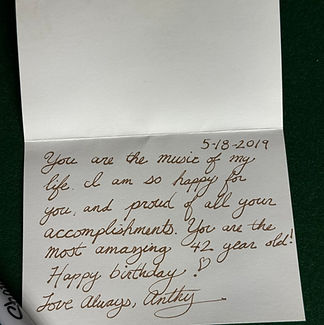 5-18-2019
You are the music of my
life. I am so happy for
you, and proud of all your
accomplishments. You are the
most amazing 42 year old!
Happy birthday!
Love Always,